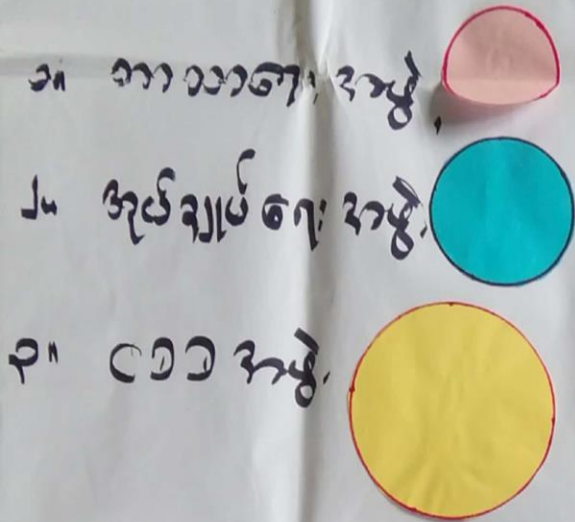 ၁။ ဘာသာရေး အဖွဲ့
၂။ အုပ်ချုပ်ရေး အဖွဲ့
၃။ အဖွဲ့